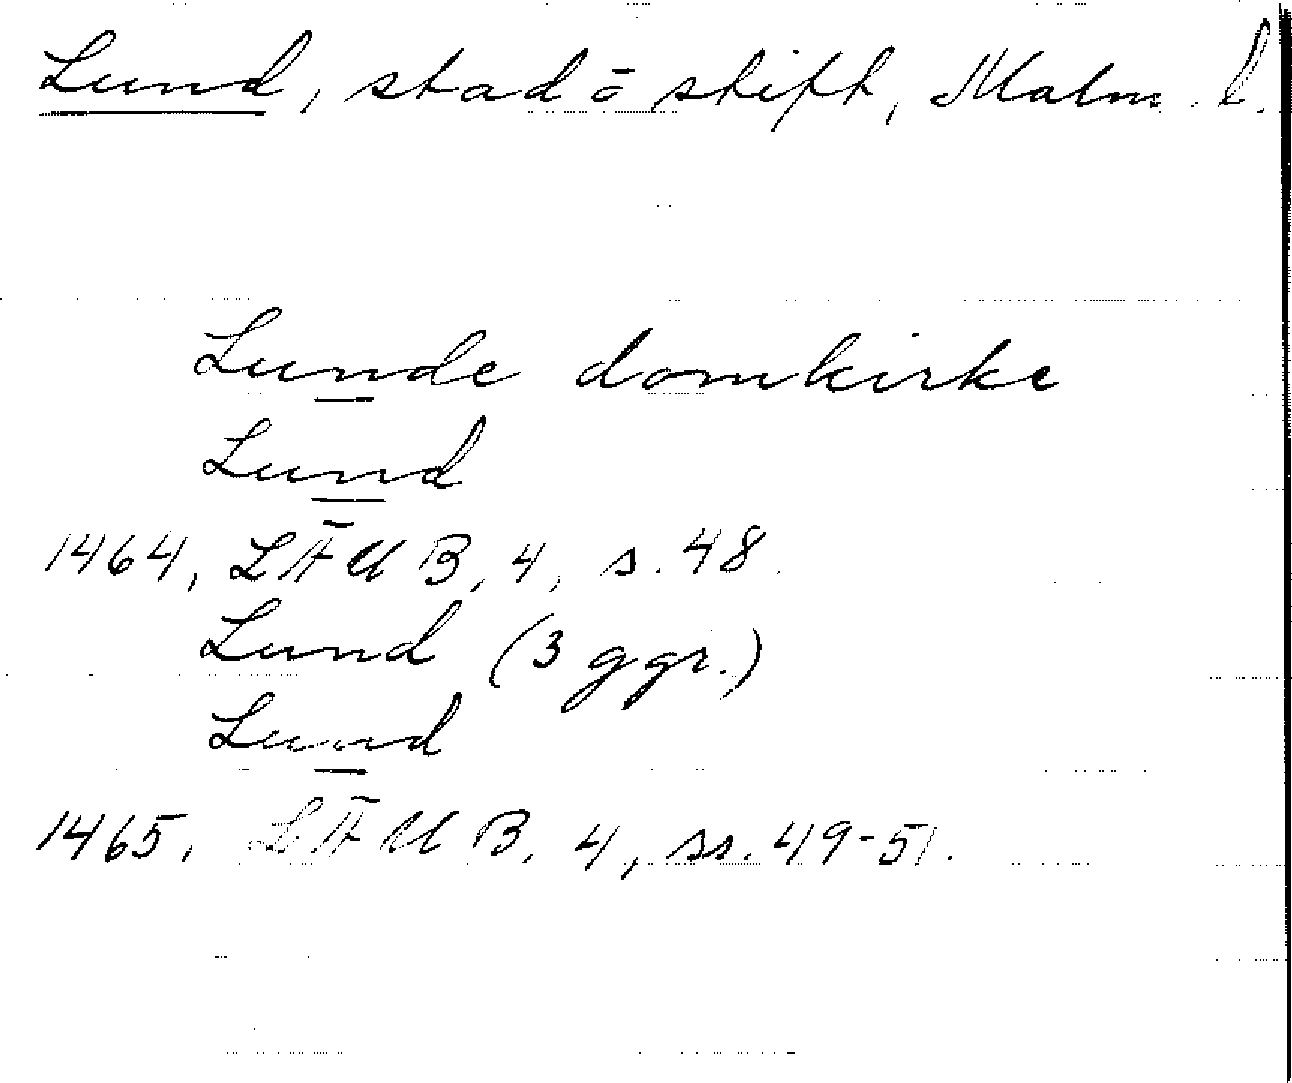 Lund, stad o stift, Malm. l.
Lunde domkirke
Lund
1464, LÄUB, 4, s. 48.
Lund (3 ggr.)
Lund
1465, LÄUB, 4, ss. 49-51.